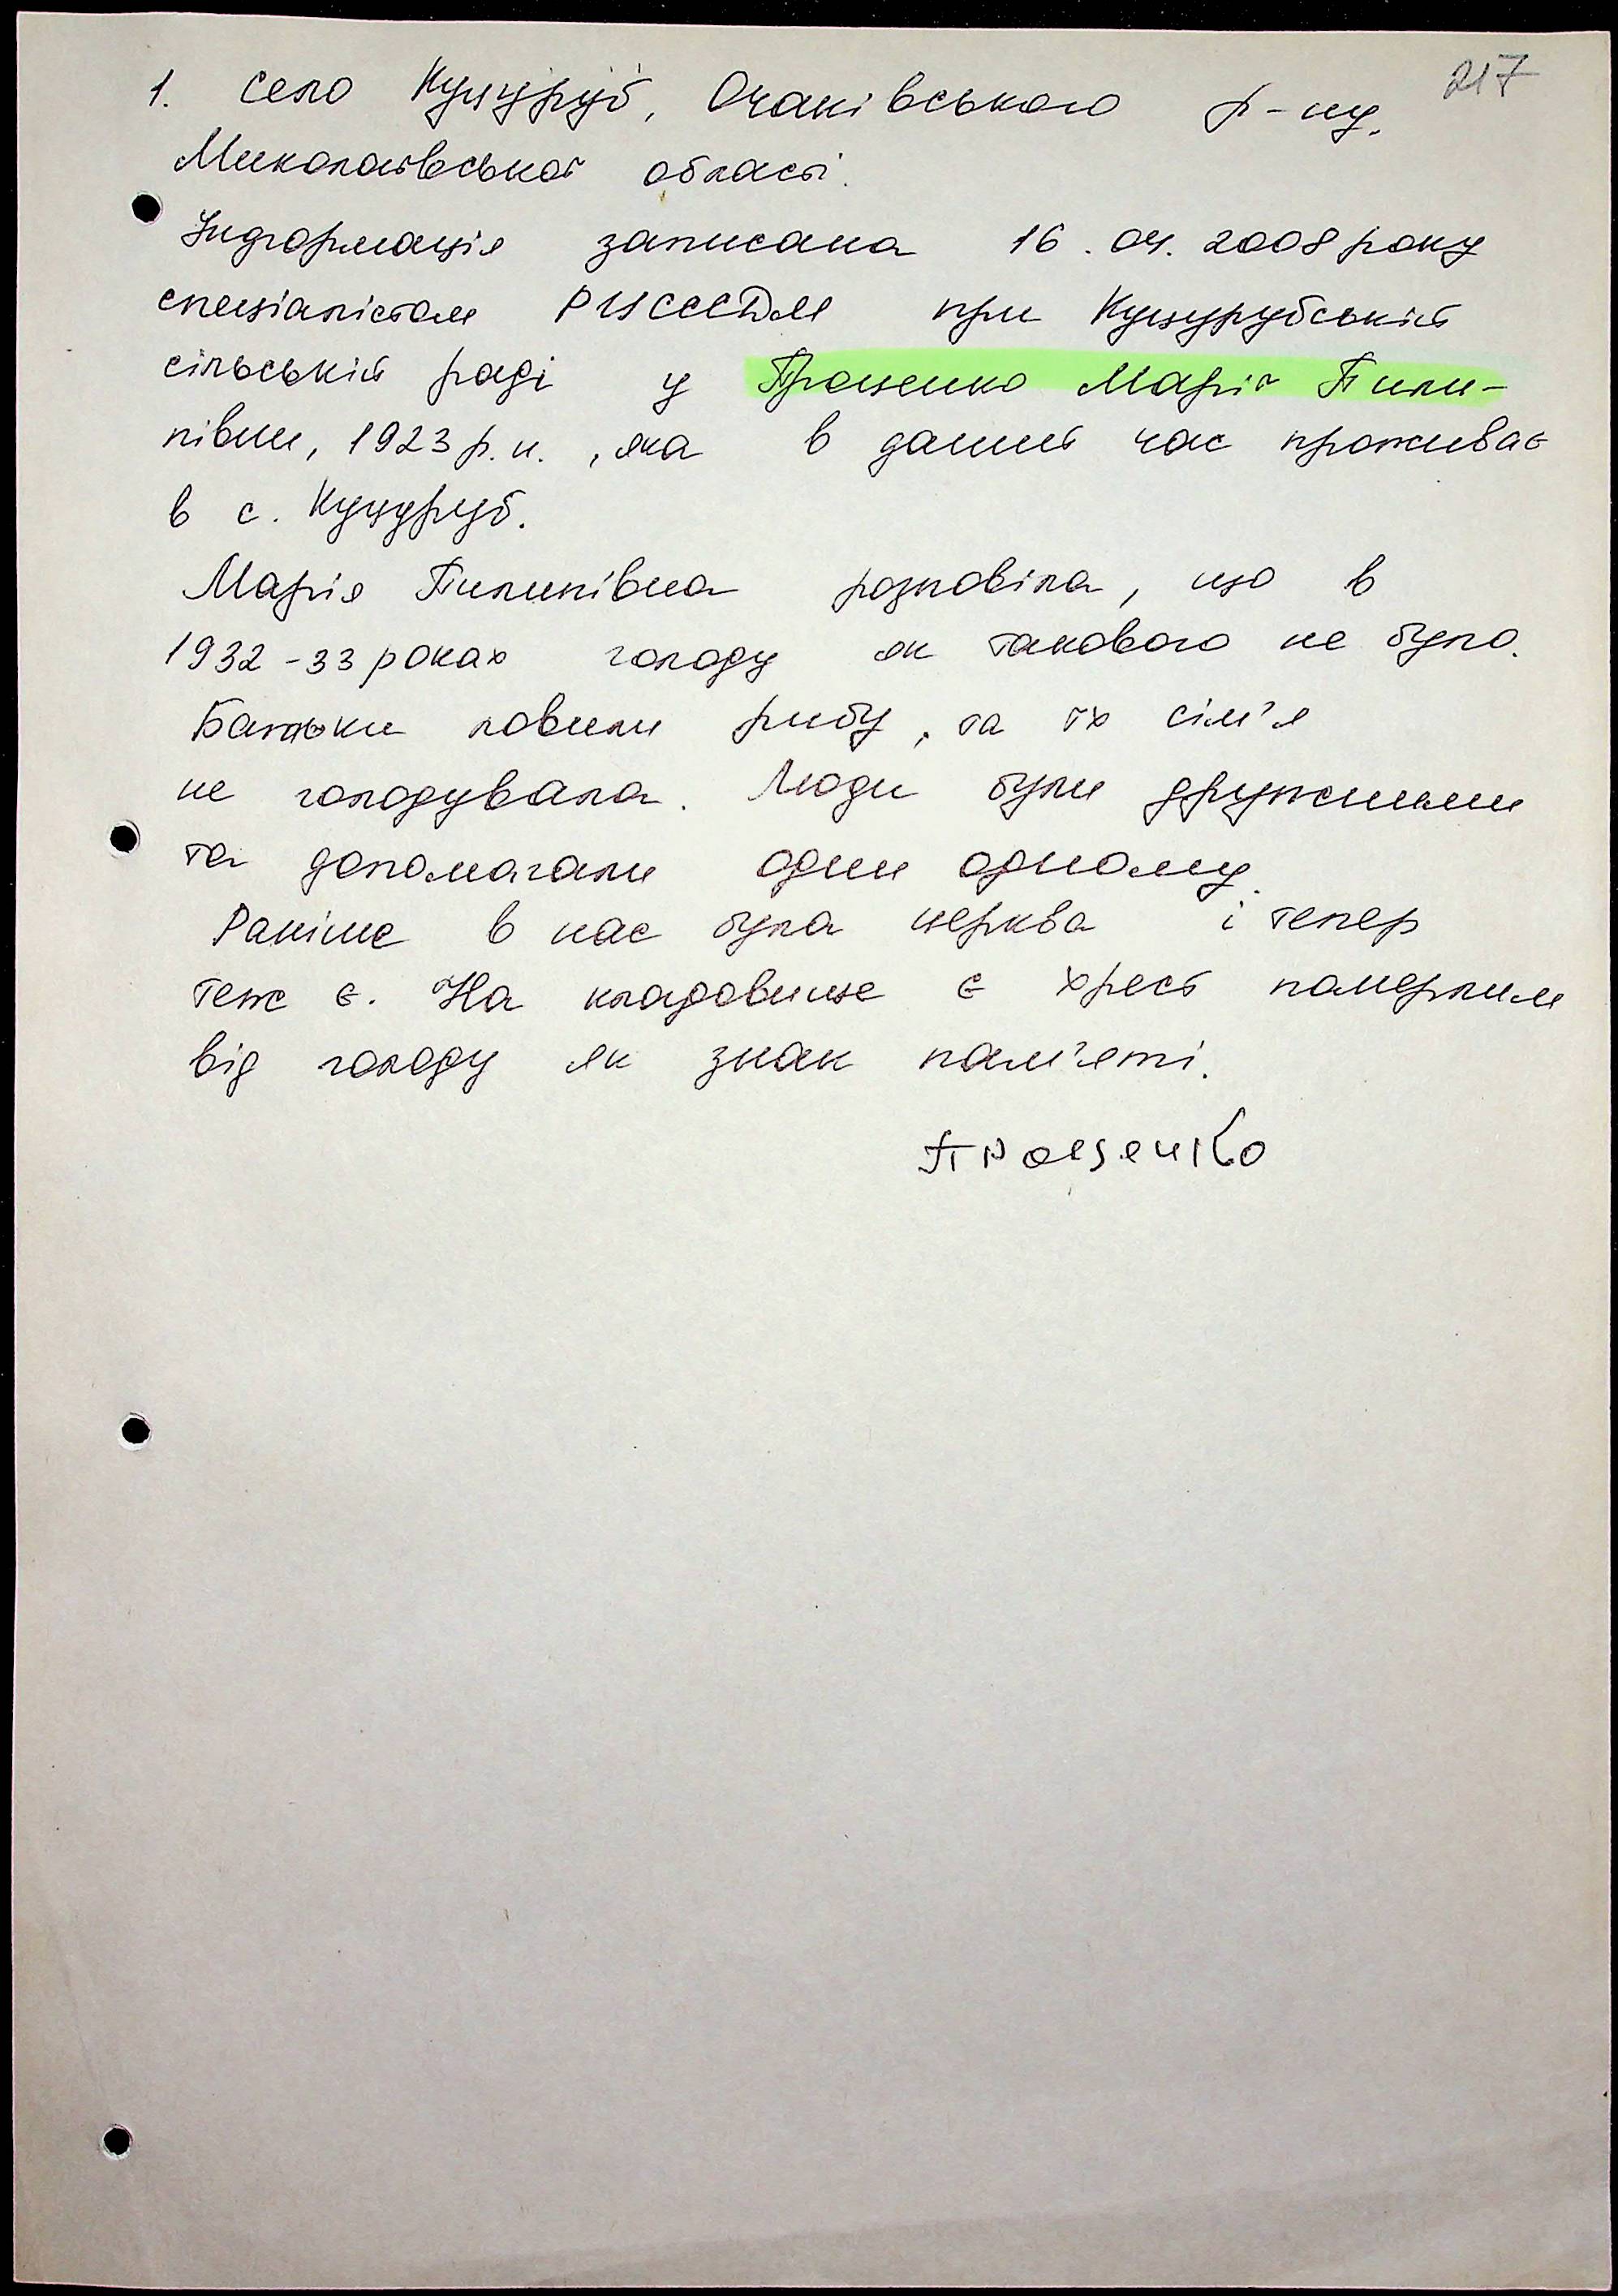 217
1. Село Куцуруб, Очаківського р-ну,
Миколаївської області.
Інформація записана 16.04.2008 року
спеціалістом РЦСССДМ при Куцурубській
сільській раді у Проценко Марії Пили-
півни, 1923 р.н., яка в даний час проживає
в с. Куцуруб.
Марія Пилипівна розповіла, що в
1932-33 роках голоду як такового не було.
Батьки ловили рибу, та їх сім'я
не голодувала. Люди були дружними
та допомагали один одному.
Раніше в нас була церква і тепер
теж є. На кладовище є хрест померлим
від голоду як знак пам'яті.
Проценко